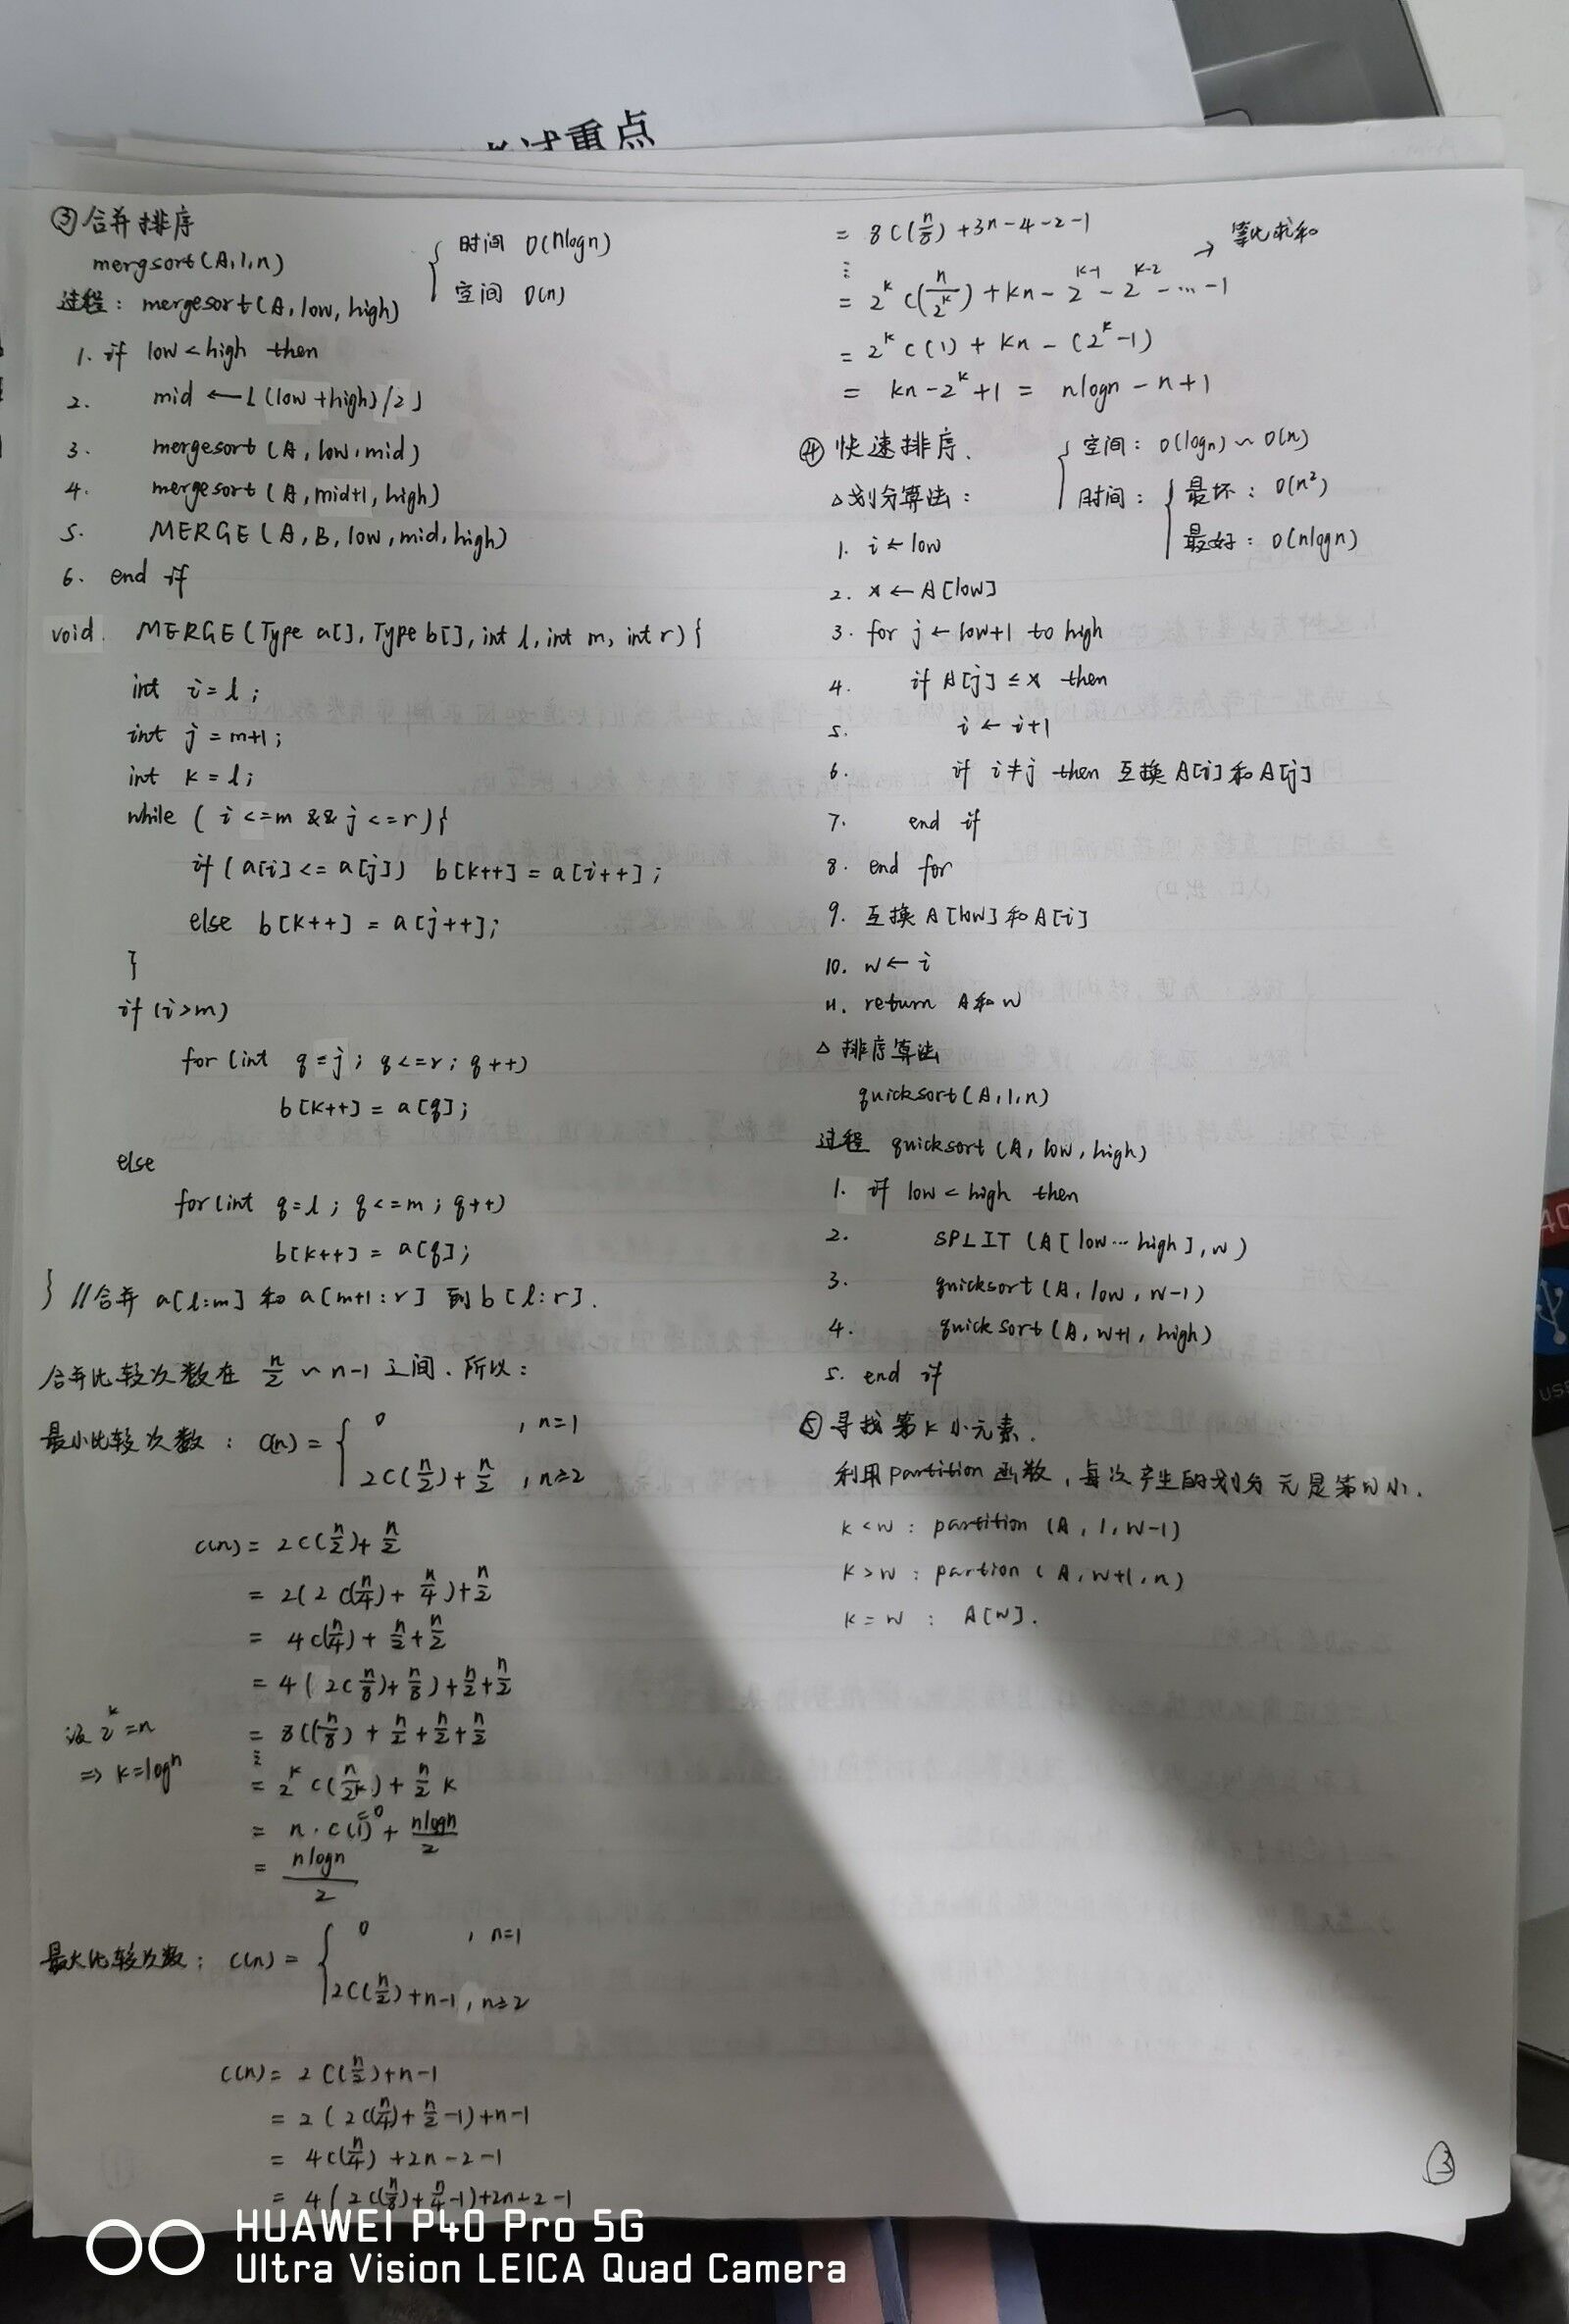 考试重点
③合并排序
mergsort(A,1,n)
时间 O(nlogn)
空间 O(n)
过程：mergesort(A, low, high)
1. if low < high then
2. mid ← ⌊(low+high)/2⌋
3. mergesort(A, low, mid)
4. mergesort(A, mid+1, high)
5. MERGE(A, B, low, mid, high)
6. end if
void MERGE(Type a[], Type b[], int l, int m, int r){
int i = l;
int j = m+1;
int k = l;
while ( i <= m && j <= r){
if (a[i] <= a[j]) b[k++] = a[i++];
else b[k++] = a[j++];
}
if (i>m)
for (int q = j; q <= r; q++)
b[k++] = a[q];
else
for (int q = l; q <= m; q++)
b[k++] = a[q];
} //合并 a[l:m] 和 a[m+1:r] 到 b[l:r].
合并比较次数在 n/2 ~ n-1 之间. 所以：
最小比较次数： C(n) = { 0 , n=1
2C(n/2) + n/2 , n≥2
C(n) = 2C(n/2) + n/2
= 2(2C(n/4) + n/4) + n/2
= 4C(n/4) + n/2 + n/2
= 4(2C(n/8) + n/8) + n/2 + n/2
设 2^k = n
= 8C(n/8) + n/2 + n/2 + n/2
⇒ k = logn
⋮
= 2^k C(n/2^k) + n/2 k
= n · C(1)^{=0} + nlogn/2
= nlogn/2
最大比较次数： C(n) = { 0 , n=1
2C(n/2) + n-1 , n≥2
C(n) = 2C(n/2) + n-1
= 2(2C(n/4) + n/2 - 1) + n-1
= 4C(n/4) + 2n - 2 - 1
= 4(2C(n/8) + n/4 - 1) + 2n - 2 - 1
= 8C(n/8) + 3n - 4 - 2 - 1
⋮
→ 等比求和
= 2^k C(n/2^k) + kn - 2^{k-1} - 2^{k-2} - ... - 1
= 2^k C(1) + kn - (2^k - 1)
= kn - 2^k + 1 = nlogn - n + 1
④ 快速排序.
空间： O(logn) ~ O(n)
时间： 最坏： O(n²)
最好： O(nlogn)
△划分算法：
1. i ← low
2. x ← A[low]
3. for j ← low+1 to high
4. if A[j] ≤ x then
5. i ← i+1
6. if i≠j then 互换 A[i] 和 A[j]
7. end if
8. end for
9. 互换 A[low] 和 A[i]
10. w ← i
11. return A和w
△ 排序算法
quicksort(A,1,n)
过程 quicksort(A, low, high)
1. if low < high then
2. SPLIT (A[low...high], w)
3. quicksort(A, low, w-1)
4. quicksort(A, w+1, high)
5. end if
⑤ 寻找第k小元素.
利用partition函数，每次产生的划分元是第w小.
k < w : partition (A, 1, w-1)
k > w : partion (A, w+1, n)
k = w : A[w].
③
HUAWEI P40 Pro 5G
Ultra Vision LEICA Quad Camera